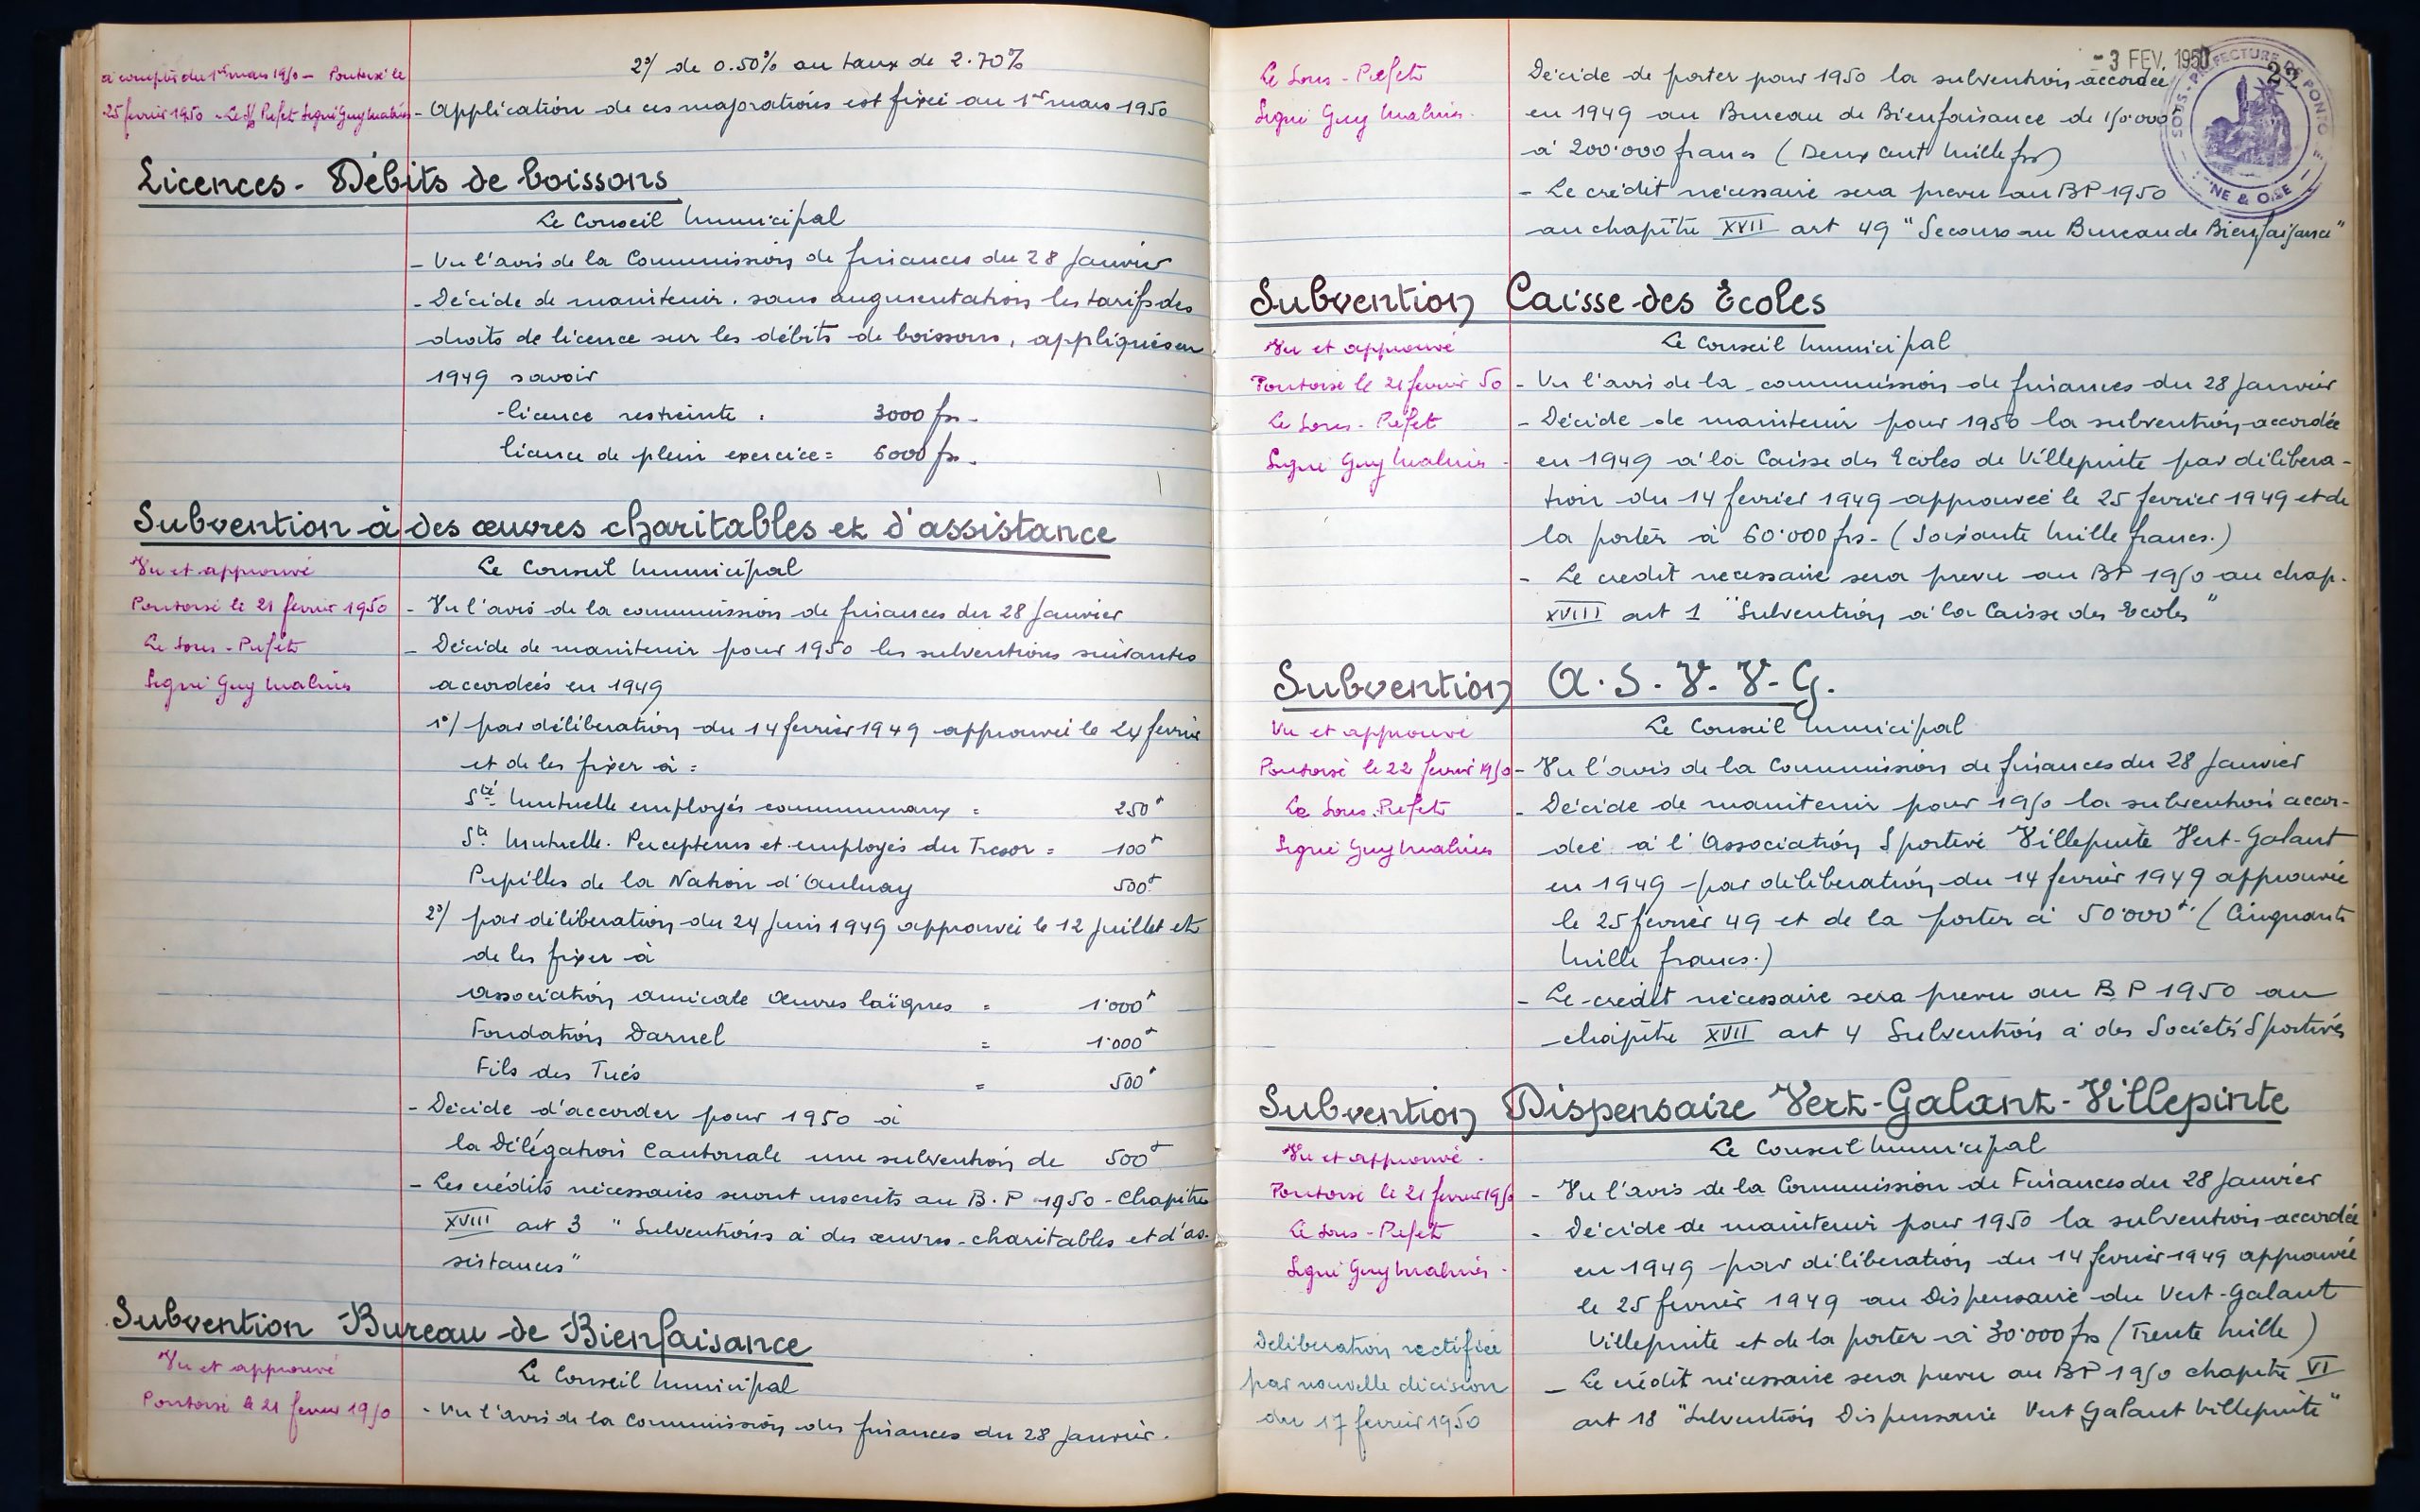 2°/ de 0.50% au taux de 2.70%
à compter du 1er mars 1950 - Pontoise le
25 février 1950 - Le S/ Préfet Signé Guy Malines
- Application de ces majorations est fixée au 1er mars 1950
Licences - Débits de boissons
Le Conseil Municipal
- Vu l'avis de la Commission de finances du 28 Janvier
- Décide de maintenir, sans augmentation les tarifs des
droits de licence sur les débits de boissons, appliqués en
1949 savoir
- licence restreinte : 3000 frs -
licence de plein exercice = 6000 frs -
Subvention à des œuvres charitables et d'assistance
Vu et approuvé
Pontoise le 21 février 1950
Le Sous-Préfet
Signé Guy Malines
Le Conseil Municipal
- Vu l'avis de la commission de finances du 28 Janvier
- Décide de maintenir pour 1950 les subventions suivantes
accordées en 1949
1°/ par délibération du 14 février 1949 approuvée le 24 février
et de les fixer à =
Sté Mutuelle employés communaux = 250f
Sté Mutuelle. Percepteurs et employés du Trésor = 100f
Pupilles de la Nation d'Aulnay 500f
2°/ par délibération du 24 Juin 1949 approuvée le 12 Juillet et
de les fixer à
Association amicale Œuvres laïques = 1'000f
Fondation Darnel = 1'000f
Fils des Tués = 500f
- Décide d'accorder pour 1950 à
la Délégation Cantonale une subvention de 500f
- Les crédits nécessaires seront inscrits au B.P 1950 - Chapitre
XVIII art 3 "Subventions à des œuvres charitables et d'as-
sistances"
Subvention Bureau de Bienfaisance
Vu et approuvé
Pontoise le 21 février 1950
Le Conseil Municipal
- Vu l'avis de la Commission des finances du 28 Janvier.
Le Sous-Préfet
Signé Guy Malines.
- 3 FEV. 1950
SOUS-PRÉFECTURE DE PONTOISE
NE & OISE
Décide de porter pour 1950 la subvention accordée
en 1949 au Bureau de Bienfaisance de 150'000
à 200'000 francs (Deux Cent Mille frs)
- Le crédit nécessaire sera prévu au BP 1950
au chapitre XVII art 49 "Secours au Bureau de Bienfaisance"
Subvention Caisse des Ecoles
Vu et approuvé
Pontoise le 21 février 50
Le Sous-Préfet
Signé Guy Malines -
Le Conseil Municipal
- Vu l'avis de la commission de finances du 28 Janvier
- Décide de maintenir pour 1950 la subvention accordée
en 1949 à la Caisse des Ecoles de Villepinte par délibéra-
tion du 14 février 1949 approuvée le 25 février 1949 et de
la porter à 60'000 frs - (Soixante Mille francs.)
- Le crédit nécessaire sera prévu au BP 1950 au chap.
XVIII art 1 "Subvention à la Caisse des Ecoles"
Subvention A.S.V.V-G.
Vu et approuvé
Pontoise le 22 février 1950
Le Sous-Préfet
Signé Guy Malines
Le Conseil Municipal
- Vu l'avis de la Commission de finances du 28 Janvier
- Décide de maintenir pour 1950 la subvention accor-
dée à l'Association Sportive Villepinte Vert-Galant
en 1949 par délibération du 14 février 1949 approuvée
le 25 février 49 et de la porter à 50'000f. (Cinquante
Mille francs.)
- Le crédit nécessaire sera prévu au B P 1950 au
chapitre XVII art 4 Subventions à des Sociétés Sportives
Subvention Dispensaire Vert-Galant-Villepinte
Vu et approuvé -
Pontoise le 21 février 1950
Le Sous-Préfet
Signé Guy Malines -
Délibération rectifiée
par nouvelle décision
du 17 février 1950
Le Conseil Municipal
- Vu l'avis de la Commission de Finances du 28 Janvier
- Décide de maintenir pour 1950 la subvention accordée
en 1949 par délibération du 14 février 1949 approuvée
le 25 février 1949 au Dispensaire du Vert-Galant
Villepinte et de la porter à 30'000 frs (Trente Mille)
- Le crédit nécessaire sera prévu au BP 1950 chapitre VI
art 18 "Subvention Dispensaire Vert Galant Villepinte"